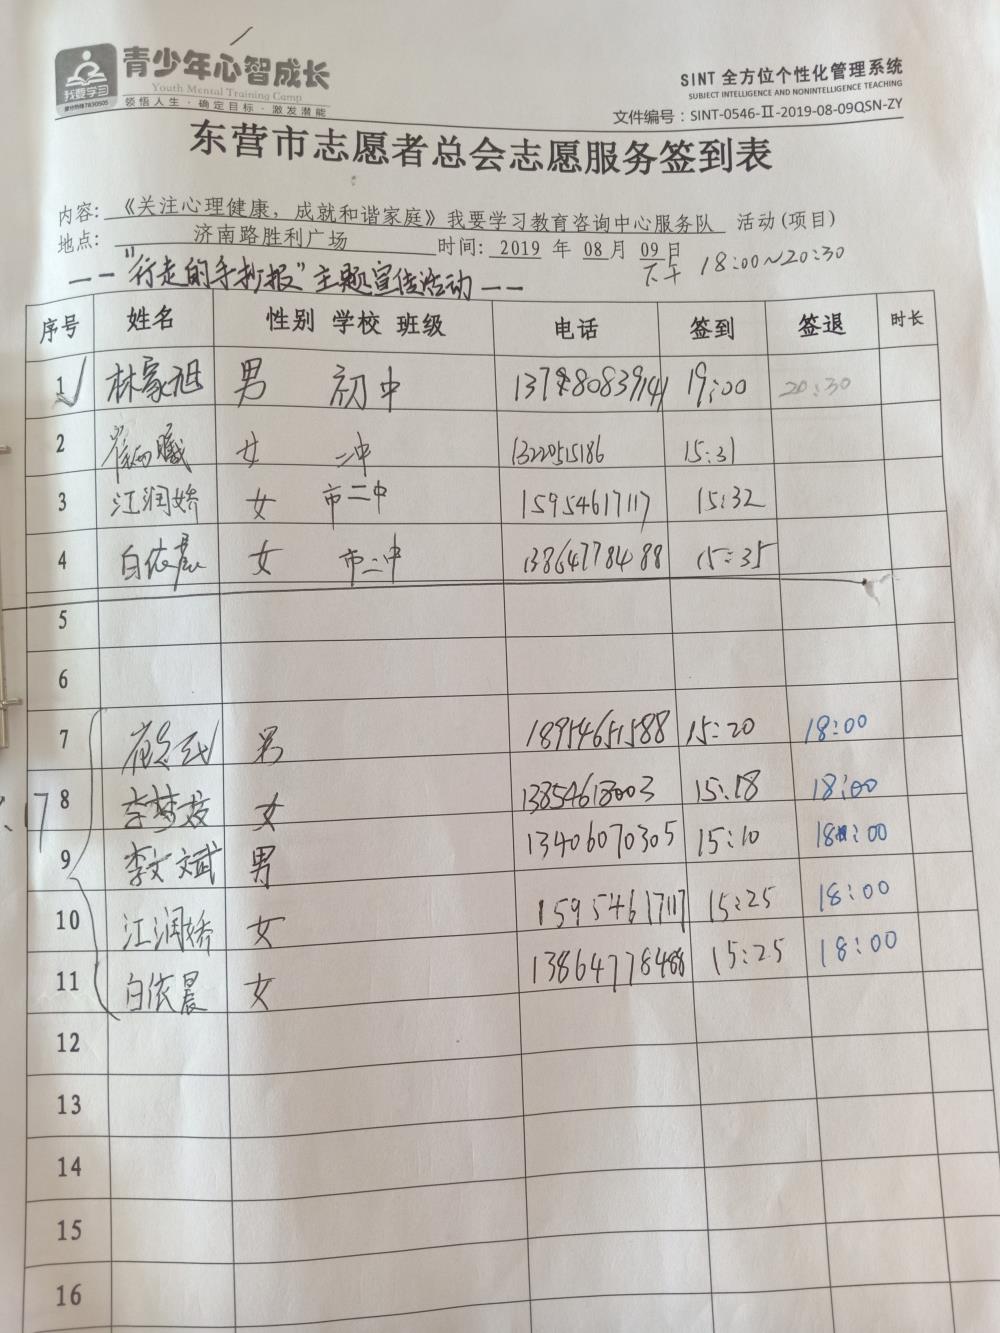 青少年心智成长
Youth Mental Training Camp
领悟人生·确定目标·激发潜能
我要学习
SINT 全方位个性化管理系统
SUBJECT INTELLIGENCE AND NONINTELLIGENCE TEACHING
文件编号：SINT-0546-Ⅱ-2019-08-09QSN-ZY
东营市志愿者总会志愿服务签到表
内容：《关注心理健康，成就和谐家庭》我要学习教育咨询中心服务队 活动(项目)
地点：济南路胜利广场 时间：2019 年 08 月 09 日
下午 18:00~20:30
——"行走的手抄报"主题宣传活动——
序号 姓名 性别 学校 班级 电话 签到 签退 时长
1 林家旭 男 初中 19:00 20:30
2 女 二中 13220515186 15:31
3 江润娇 女 市二中 15954617117 15:32
4 白依晨 女 市二中 13864778488 15:35
5
6
7 男 18954651588 15:20 18:00
8 李梦 女 13854618003 15:18 18:00
9 李文斌 男 13406070305 15:10 18:00
10 江润娇 女 15954617117 15:25 18:00
11 白依晨 女 13864778488 15:25 18:00
12
13
14
15
16